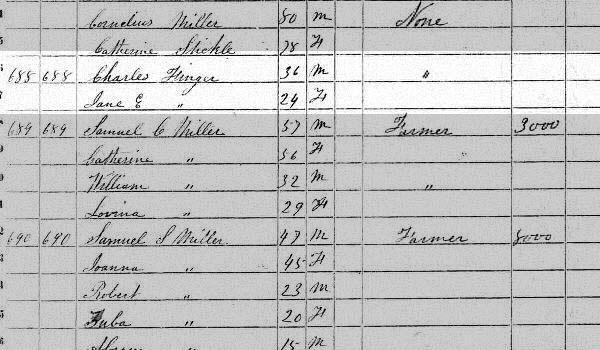 Cornelius Miller 80 m None
Catherine Stickle 78 F
688 688 Charles Finger 36 m "
Jane E " 24 F
689 689 Samuel C Miller 57 m Farmer 3000
Catherine " 56 F
William " 32 m "
Lovina " 29 F
690 690 Samuel S Miller 47 m Farmer 8000
Joanna " 45 F
Robert " 23 m
" 20 F
15 m